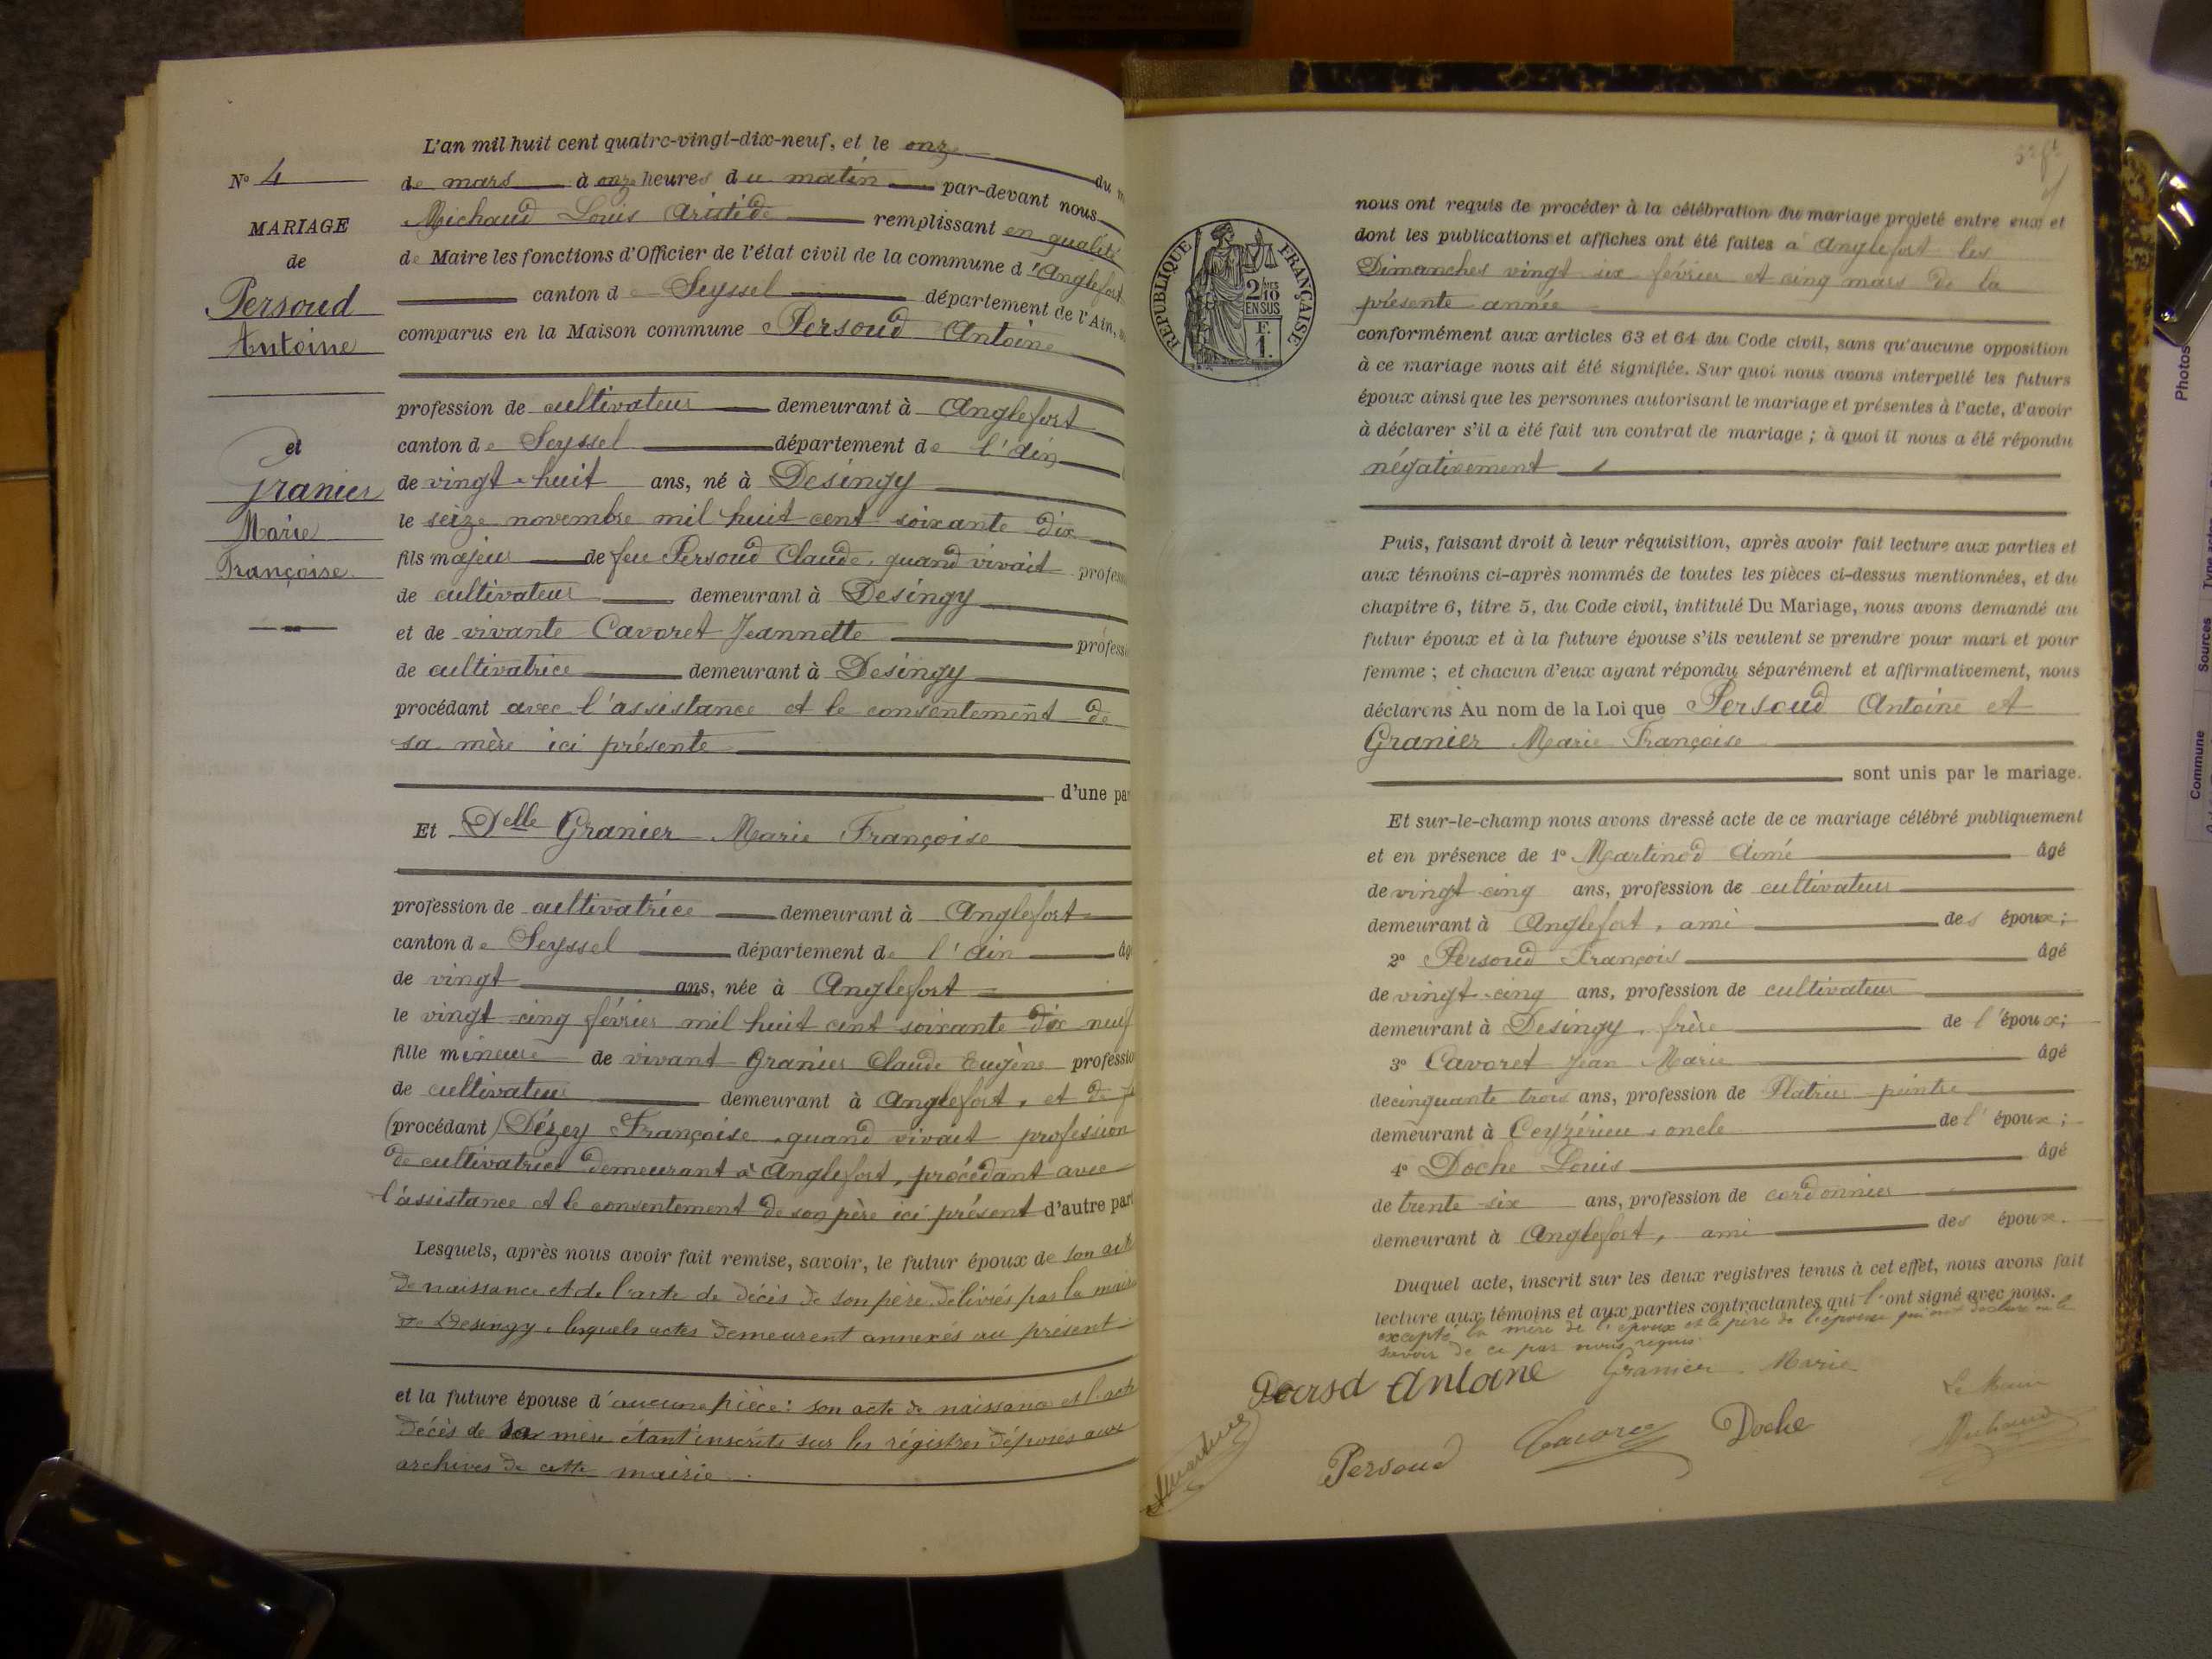 N° 4
MARIAGE
de
Persoud
Antoine
et
Granier
Marie
Françoise
L'an mil huit cent quatre-vingt-dix-neuf, et le onze du
de mars à onze heures du matin par-devant nous
Michaud Louis Aristide remplissant en qualité
de Maire les fonctions d'Officier de l'état civil de la commune d'Anglefort
canton de Seyssel département de l'Ain,
comparus en la Maison commune Persoud Antoine
profession de cultivateur demeurant à Anglefort
canton de Seyssel département de l'Ain
de vingt-huit ans, né à Desingy
le seize novembre mil huit cent soixante dix
fils majeur de feu Persoud Claude, quand vivait profess
de cultivateur demeurant à Desingy
et de vivante Cavoret Jeannette profess
de cultivatrice demeurant à Desingy
procédant avec l'assistance et le consentement de
sa mère ici présente
d'une par
Et Delle Granier Marie Françoise
profession de cultivatrice demeurant à Anglefort
canton de Seyssel département de l'Ain âg
de vingt ans, née à Anglefort
le vingt cinq février mil huit cent soixante dix neuf
fille mineure de vivant Granier Claude Eugène professio
de cultivateur demeurant à Anglefort, et de f
(procédant) Dézey Françoise, quand vivait profession
de cultivatrice demeurant à Anglefort, procédant avec
l'assistance et le consentement de son père ici présent d'autre part
Lesquels, après nous avoir fait remise, savoir, le futur époux de son acte
de naissance et de l'acte de décès de son père délivrés par la mairie
de Desingy, lesquels actes demeurent annexés au présent
et la future épouse d'aucune pièce: son acte de naissance et l'acte
décès de sa mère étant inscrits sur les régistres déposés aux
archives de cette mairie.
RÉPUBLIQUE FRANÇAISE
2/10
EN SUS
F.
1.
nous ont requis de procéder à la célébration du mariage projeté entre eux et
dont les publications et affiches ont été faites à Anglefort les
Dimanches vingt six février et cinq mars de la
présente année
conformément aux articles 63 et 64 du Code civil, sans qu'aucune opposition
à ce mariage nous ait été signifiée. Sur quoi nous avons interpellé les futurs
époux ainsi que les personnes autorisant le mariage et présentes à l'acte, d'avoir
à déclarer s'il a été fait un contrat de mariage ; à quoi il nous a été répondu
négativement
Puis, faisant droit à leur réquisition, après avoir fait lecture aux parties et
aux témoins ci-après nommés de toutes les pièces ci-dessus mentionnées, et du
chapitre 6, titre 5, du Code civil, intitulé Du Mariage, nous avons demandé au
futur époux et à la future épouse s'ils veulent se prendre pour mari et pour
femme ; et chacun d'eux ayant répondu séparément et affirmativement, nous
déclarons Au nom de la Loi que Persoud Antoine et
Granier Marie Françoise
sont unis par le mariage.
Et sur-le-champ nous avons dressé acte de ce mariage célébré publiquement
et en présence de 1° Martinod Aimé âgé
de vingt cinq ans, profession de cultivateur
demeurant à Anglefort, ami des époux ;
2° Persoud François âgé
de vingt-cinq ans, profession de cultivateur
demeurant à Desingy, frère de l'époux ;
3° Cavoret Jean Marie âgé
de cinquante trois ans, profession de Platrier peintre
demeurant à Ceyzérieu, oncle de l'époux ;
4° Doche Louis âgé
de trente-six ans, profession de cordonnier
demeurant à Anglefort, ami des époux.
Duquel acte, inscrit sur les deux registres tenus à cet effet, nous avons fait
lecture aux témoins et aux parties contractantes qui l'ont signé avec nous.
excepté la mère de l'époux et le père de l'épouse qui ont déclaré ne le
savoir de ce par nous requis.
Antoine Granier Marie
Le Maire
Persoud Cavoret Doche Michaud
Photos
Sources
Commune